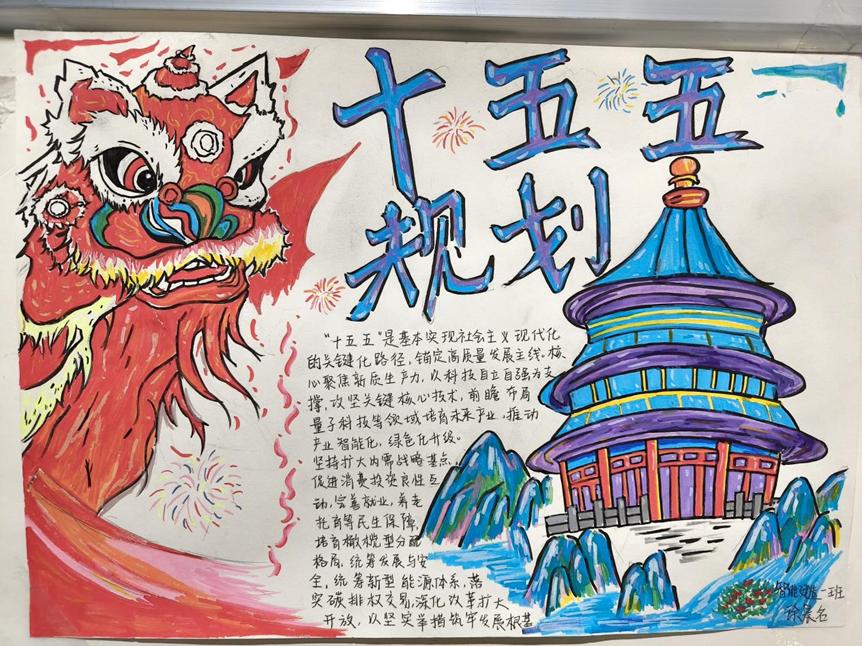 十五五
规划
"十五五"是基本实现社会主义现代化
的关键化路径,锚定高质量发展主线。核
心聚焦新质生产力,以科技自立自强为支
撑,攻坚关键核心技术,前瞻布局
量子科技等领域培育未来产业,推动
产业智能化,绿色化升级。
坚持扩大内需战略基点,
促进消费投资良性互
动,完善就业,养老
托育等民生保障,
培育橄榄型分配
格局。统筹发展与安
全,统筹新型能源体系,落
实碳排权交易,深化改革扩大
开放,以坚实举措筑牢发展根基
智能 一班
徐 名